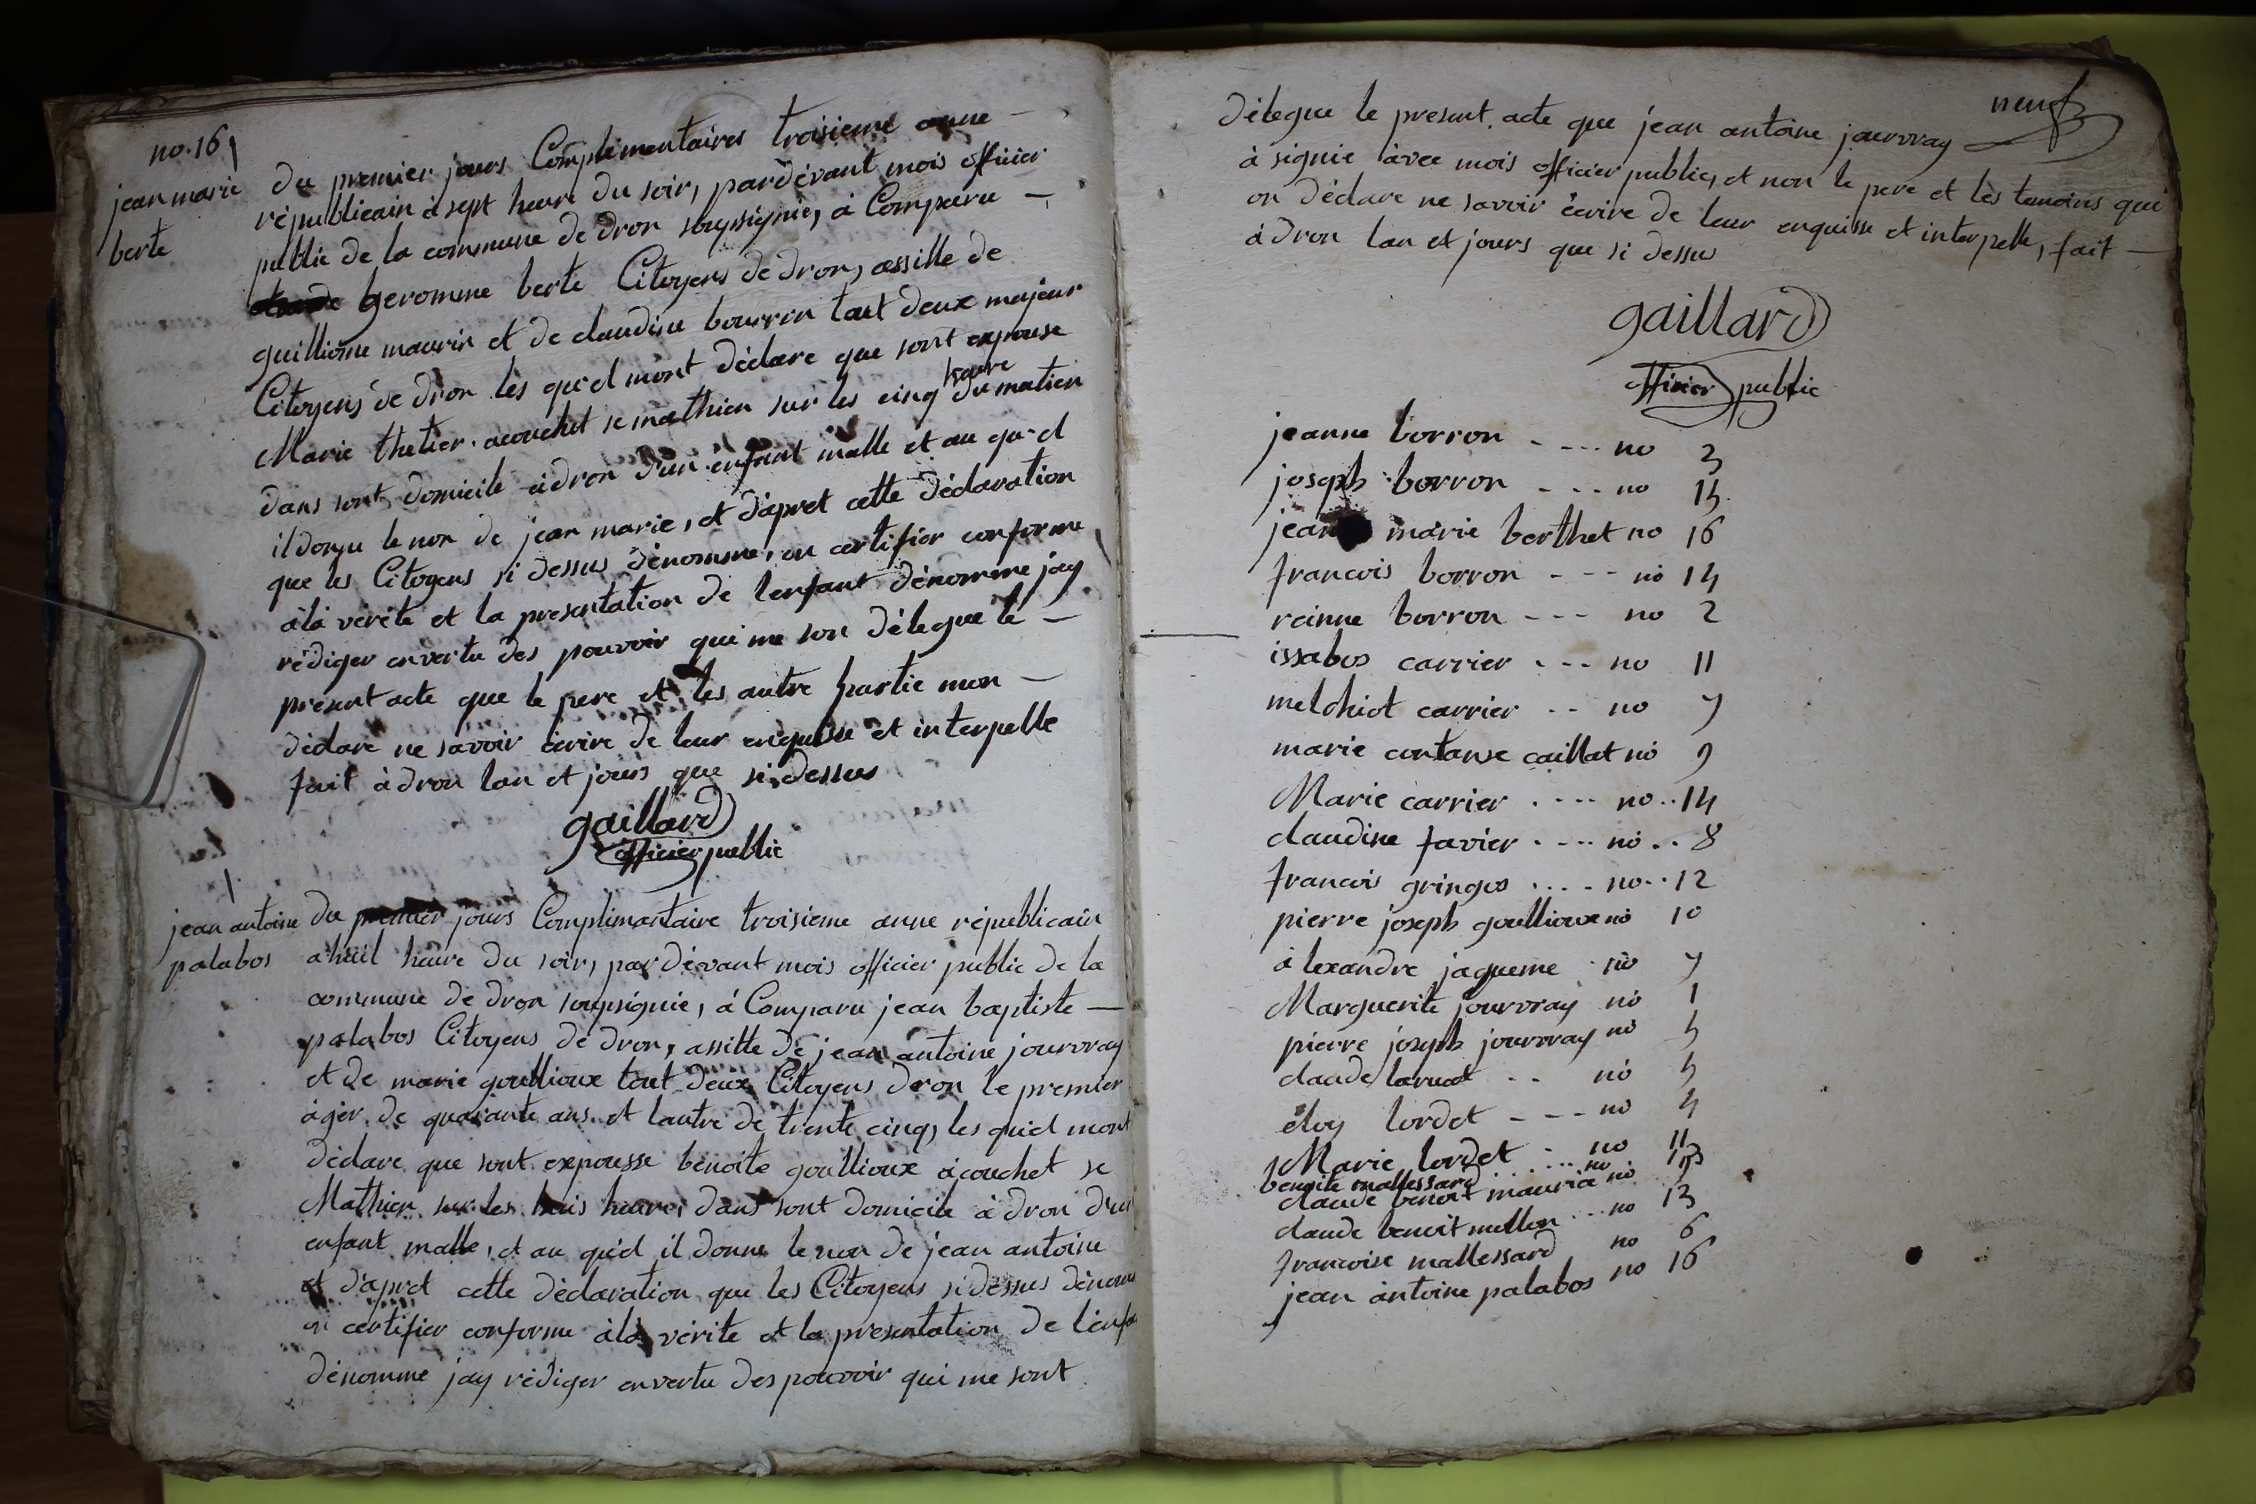 no. 16
jean marie
berte
du premier jours Complimentaires troisieme anne —
républicain à sept heure du soir, pardevant mois officier
public de la commune de dron souysignie, à Comparu —
geromme berte Citoyens de dron, assille de
guilliome maurin et de claudine bourron tout deux majeur
Citoyens de dron les qu'el mont déclare que sont expouse
Marie thetier acouchet se mathien sur les cinq heure du matien
dans sont domicile à dron d'un enfant malle et au qu'el
il donne le non de jean marie, et d'apret cette déclaration
que les Citoyens si dessus dénomme, on certifier conforme
à la vérite et la presentation de l'enfant dénomme jay
rédiger envertu des pouvoir qui me son délegue le —
present acte que le pere et les autre partie mon —
déclare ne savoir écrire de leur enquisse et interpelle
fait à dron lan et jours que si dessus
gaillard
officier public
jean antoine
palabos
du premier jours Complimantaire troisieme anne républicain
a huil heure du soir, par dévant mois officier public de la
commune de dron souysignie, à Comparu jean baptiste —
palabos Citoyens de dron, assitte de jean antoine jourvray
et de marie goullioux tout deux Citoyens dron le premier
àger de quarante ans et lautre de trente cinq, les quiel mont
déclare que sont expousse benoite goullioux àcouchet se
Mathien sur les huis heure, dans sont domicile à dron d'un
enfant malle, et au quiel il donne le non de jean antoine
et d'apret cette déclaration que les Citoyens si dessus dénom
on certifier conforme à la vérite et la presentation de l'enfa
dénomme jay rédiger envertu des pouvoir qui me sont
neuf
délegue le present acte que jean antoine jourvray
à signie àvec mois officier public, et non le pere et les temoins qui
on déclare ne savoir écrire de leur enquisse et interpelle, fait —
à dron lan et jours que si dessus
gaillard
officier public
jeanne borron - - - - no 3
joseph borron - - - no 15
jean marie berthet no 16
francois borron - - - no 14
reinne borron - - - no 2
issabos carrier - - - no 11
melchiot carrier - - no 7
marie contanse caillat no 9
Marie carrier . - - - no .. 14
claudine favier . - - - no .. 8
francois gringos . . . - no .. 12
pierre joseph goullioux no 10
àlexandre jaqueme no 7
Marguerite jourvray no 1
pierre joseph jourvray no 5
claude laruat . . no 5
éloy lordet - - - no 4
Marie lordet - no 11
benoite mallessard . . . . . . no 13
claude benoit maurice no
claude benoit mullon . . . no 13
francoise mallessard no 6
jean àntoine palabos no 16